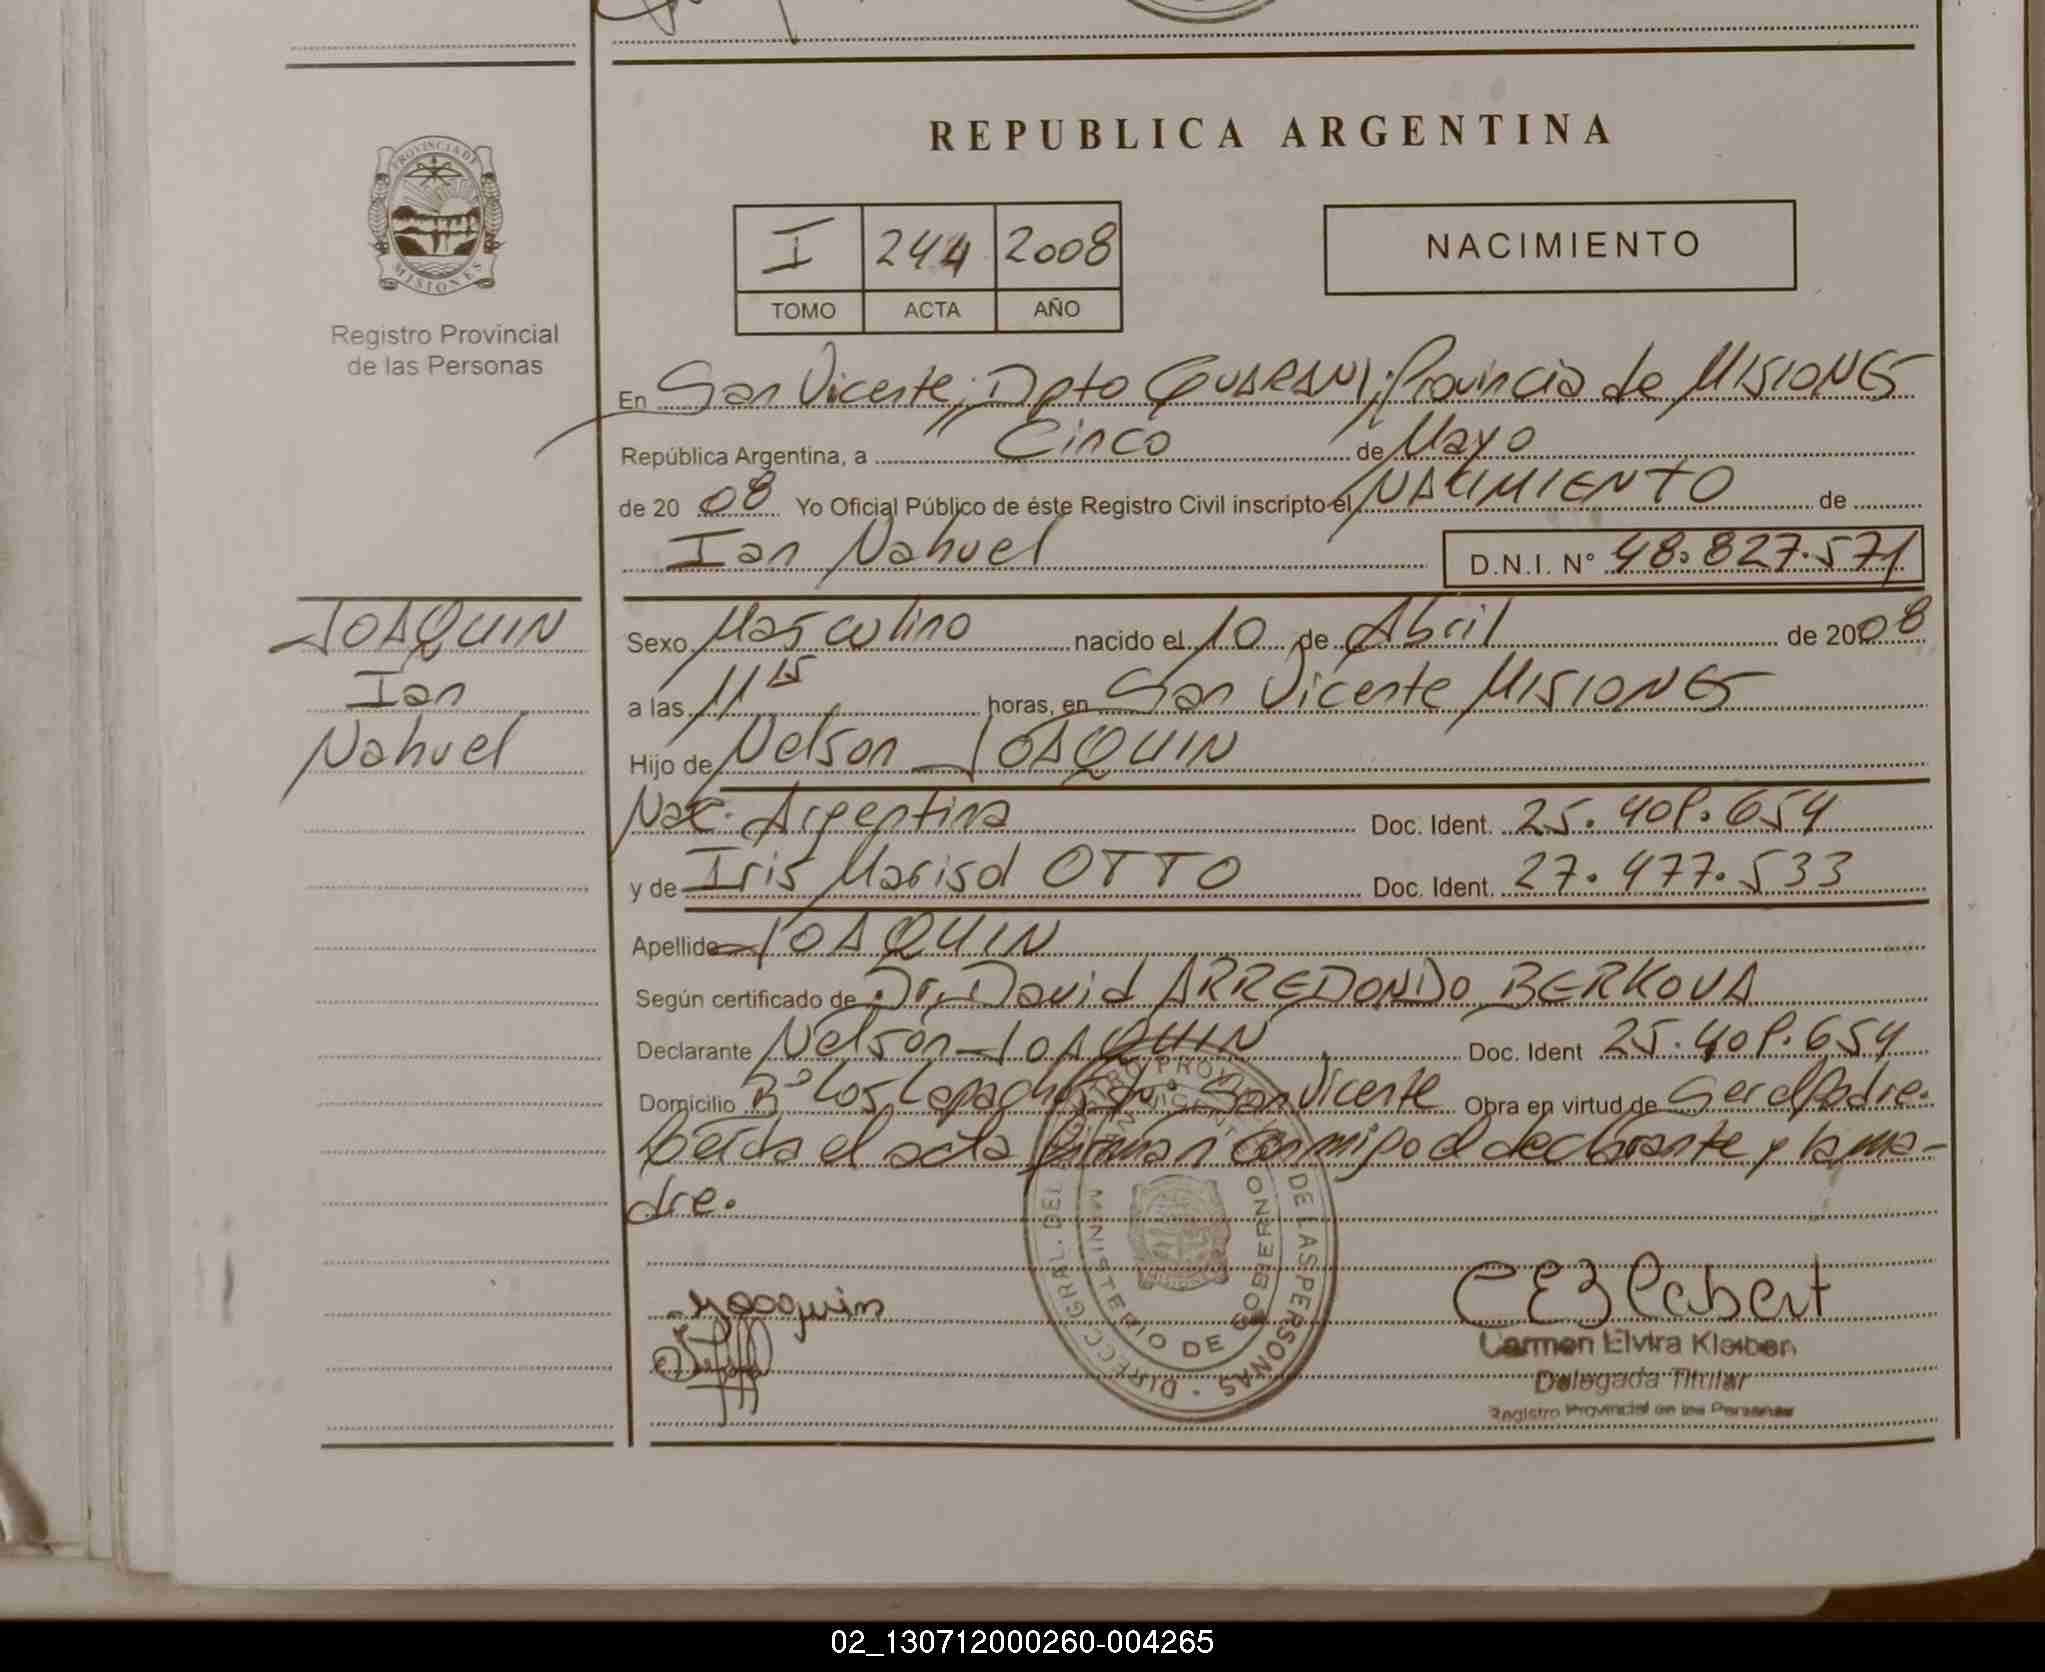 REPUBLICA ARGENTINA
PROVINCIA DE
MISIONES
Registro Provincial
de las Personas
I 244 2008
TOMO ACTA AÑO
NACIMIENTO
En San Vicente; Dpto GUARANI; Provincia de MISIONES
República Argentina, a Cinco de Mayo
de 20 08 Yo Oficial Público de éste Registro Civil inscripto el NACIMIENTO de
Ian Nahuel D.N.I. Nº 48.827.571
JOAQUIN
Ian
Nahuel
Sexo Masculino nacido el 10 de Abril de 2008
a las 11 15 horas, en San Vicente MISIONES
Hijo de Nelson JOAQUIN
Nac. Argentina Doc. Ident. 25.409.654
y de Iris Marisol OTTO Doc. Ident. 27.477.533
Apellido JOAQUIN
Según certificado de Dr. David ARREDONDO BERKOVA
Declarante Nelson JOAQUIN Doc. Ident 25.409.654
Domicilio Bº Los Lapachos San Vicente Obra en virtud de Ser el Padre.
Leída el acta firman conmigo el declarante y la ma-
dre.
DIRECC. GRAL. DEL REGISTRO PROVINCIAL DE LAS PERSONAS
SAN VICENTE
MINISTERIO DE GOBIERNO
Joaquin
Carmen Elvira Kleiben
Delegada Titular
Registro Provincial de las Personas
02_130712000260-004265